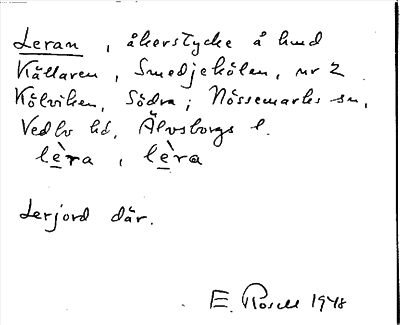 Leran, åkerstycke å hmd
Källaren, Smedjekölen, nr 2
Kölviken, Södra; Nössemarks sn,
Vedbo hd, Älvsborgs l.
lè̱ra, lè̱ra
Lerjord där.
E. Rosell 1948